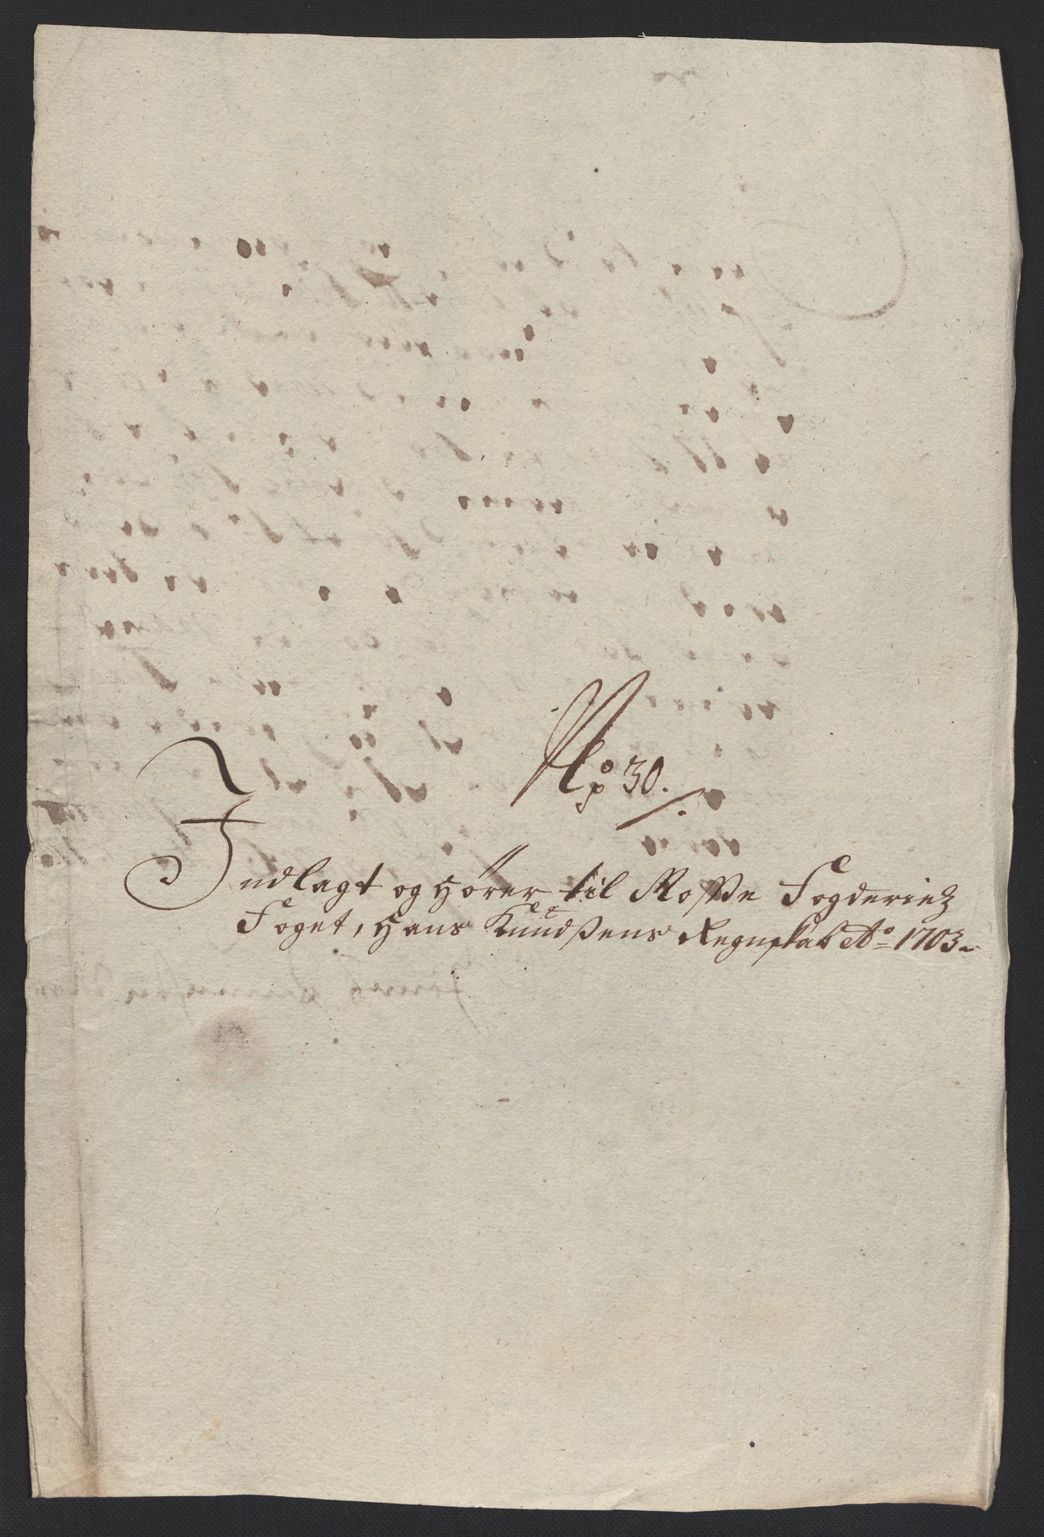 No 30.
Indlagt og Hører til Moss Fogderies
Foget, Hans Knudsens Regnskab Ao 1703